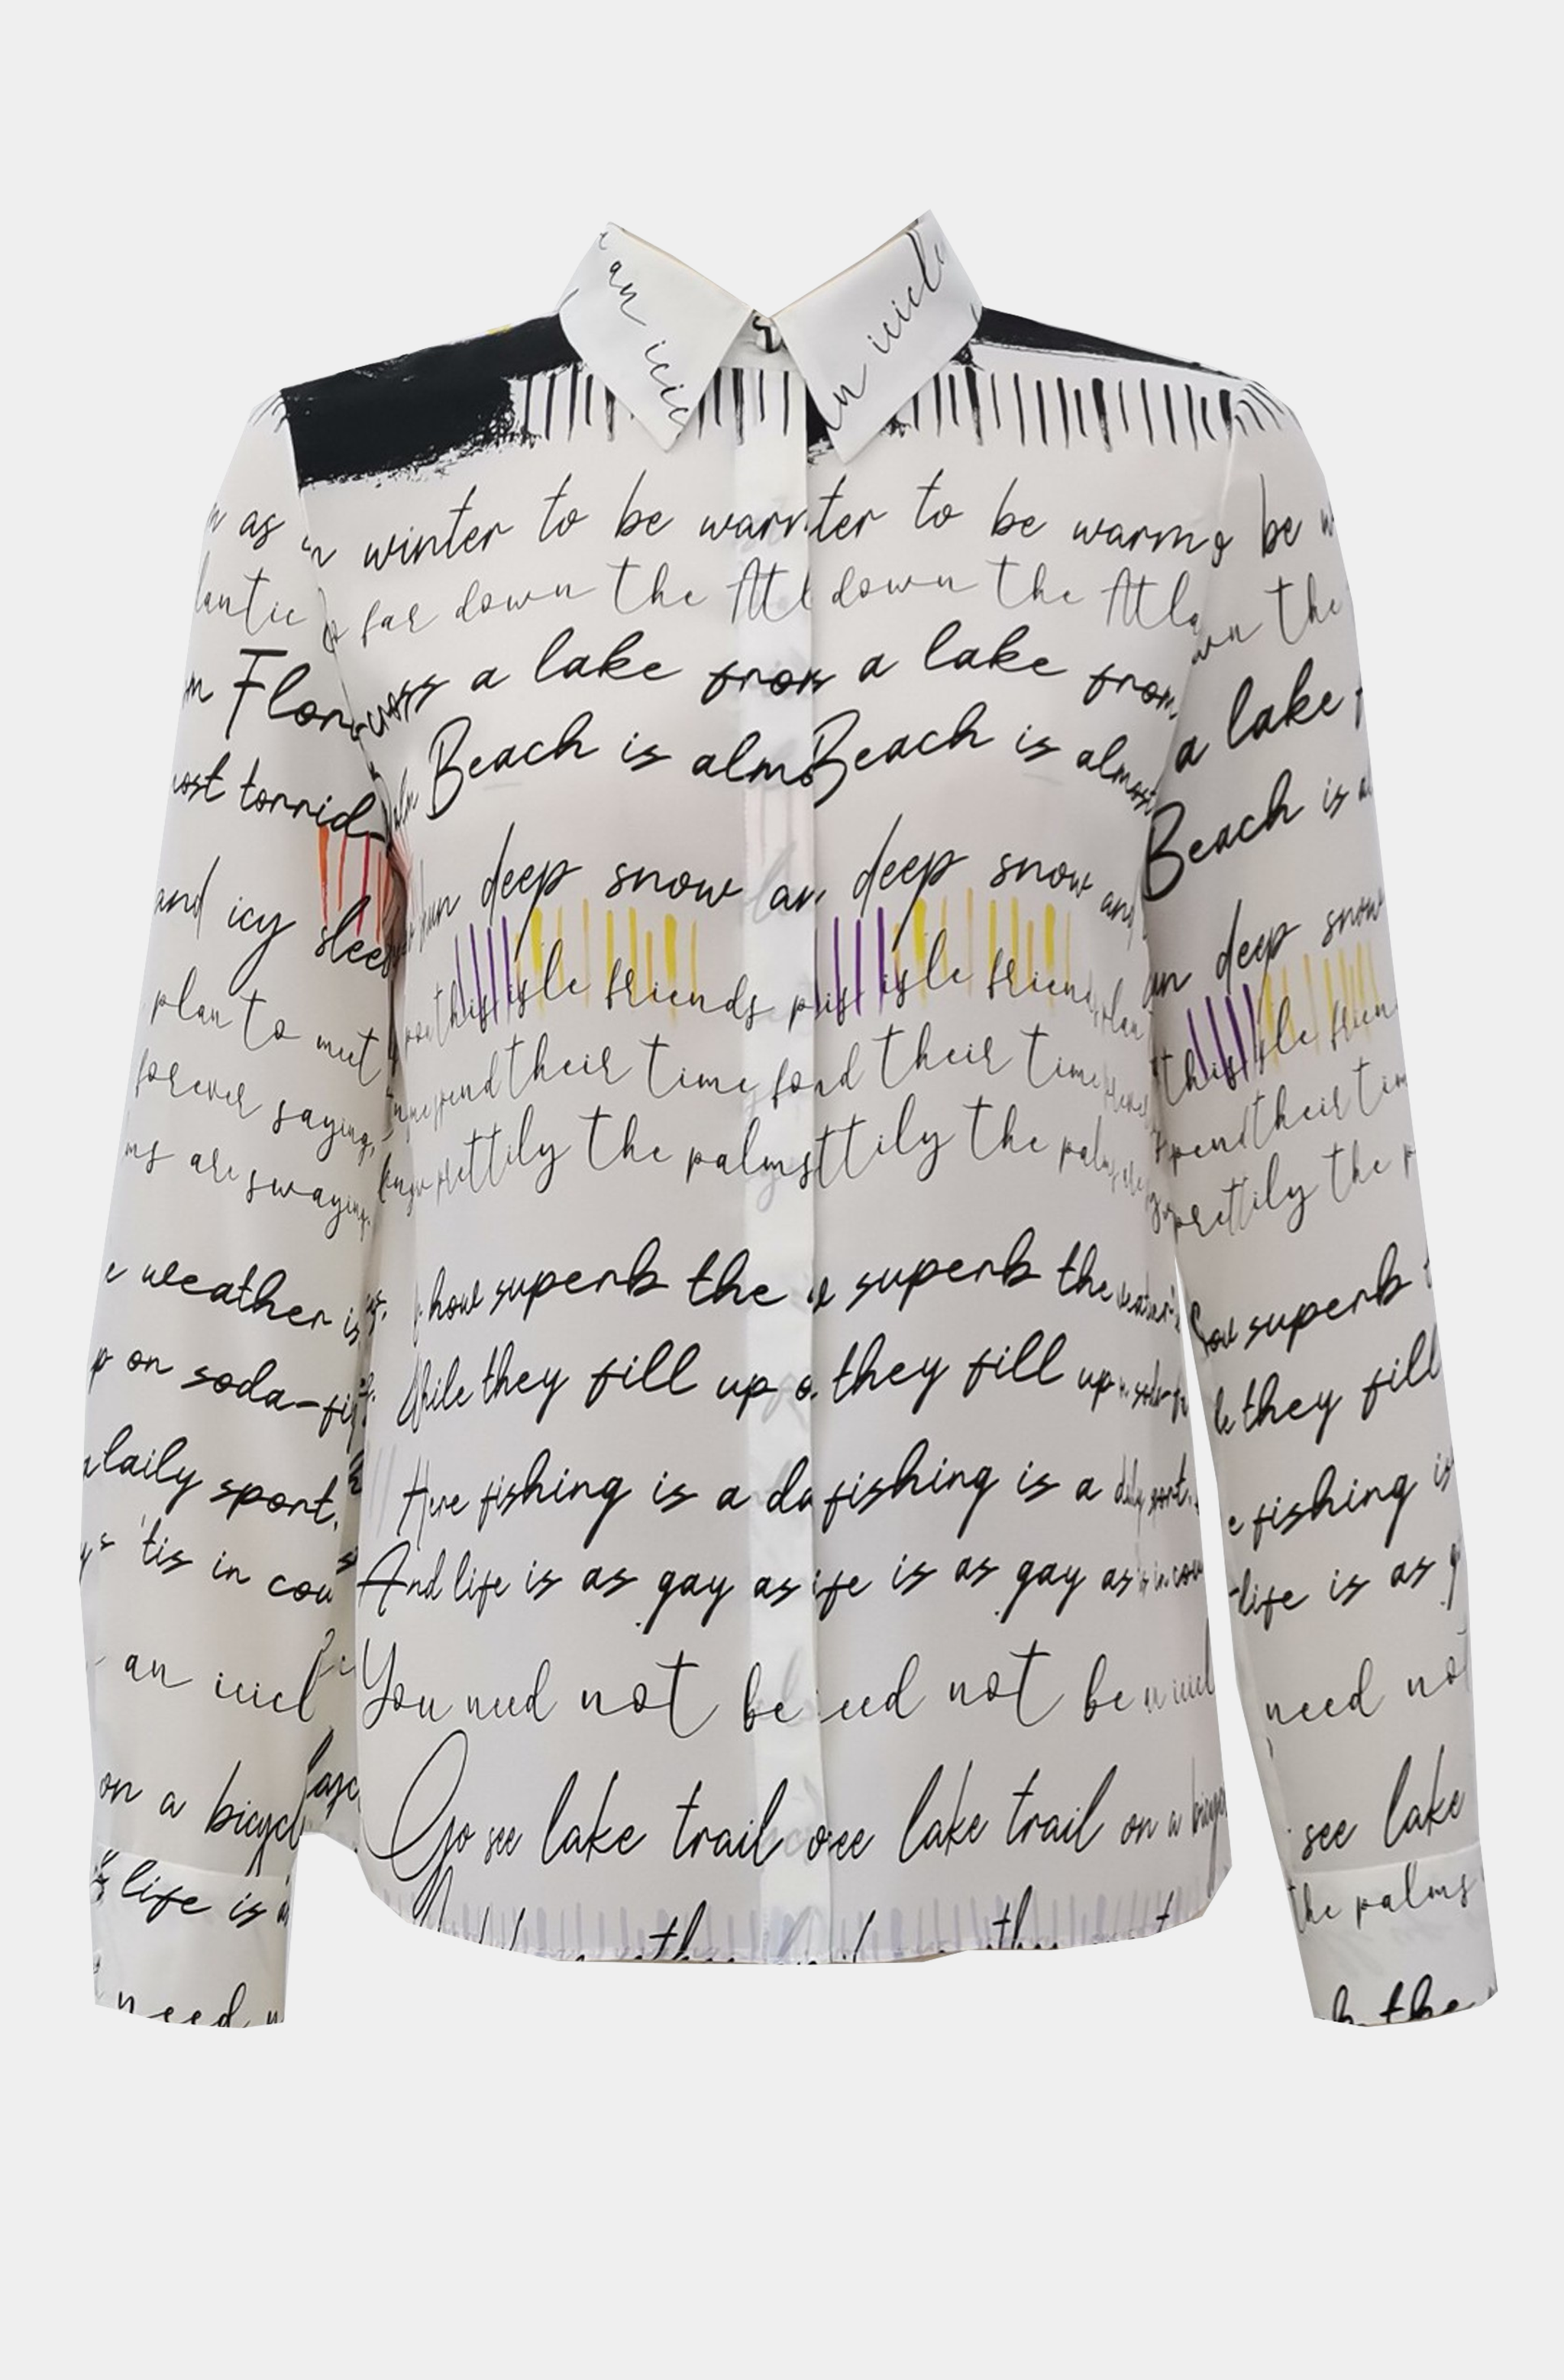 an icic
n icicl
as winter to be warm ter to be warm be
lantic far down the Atl down the Atla wn the
m Flor a lake from a lake from a lake
Beach is almo Beach is almost
most torrid- Beach is a
deep snow an deep snow and
and icy sleet deep snow
this isle friends isle friends plan this isle frien
plan to meet
spend their time fo d their time spend their tim
forever saying,
prettily the palms ttily the palms prettily the p
ms are swaying.
how superb the w superb the weather superb
e weather is
While they fill up o they fill up on soda-fi they fill
p on soda-fi
Here fishing is a da fishing is a daily sport. e fishing is
daily sport.
And life is as gay as ife is as gay as life is as g
's 'tis in cou
You need not be eed not be need not
an icicl
Go see lake trail o see lake trail on a bicycl see lake
on a bicycl
life is a the palms
need
the